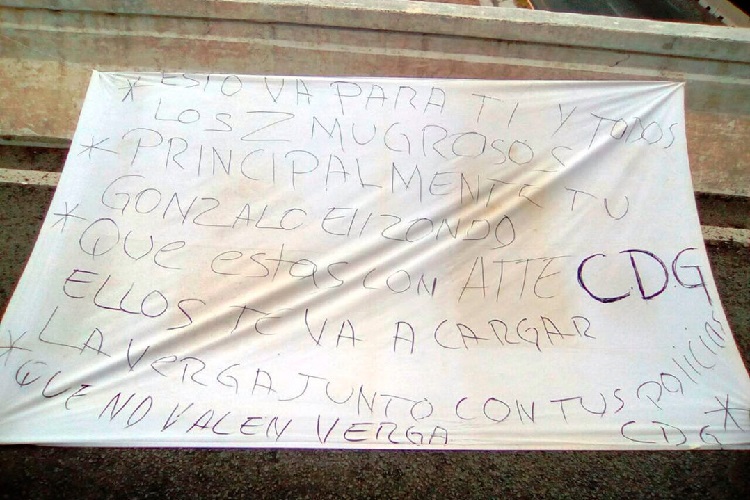 * ESTO VA PARA TI Y TODOS
LOS Z MUGROSOS
* PRINCIPALMENTE TU
GONZALO ElIZONDO
* QUE estas CON ATTE CDG
ELLOS TE VA A CARGAR
LA VERGA JUNTO CON TUS POlICIAS
* QUE NO VALEN VERGA *
CDG